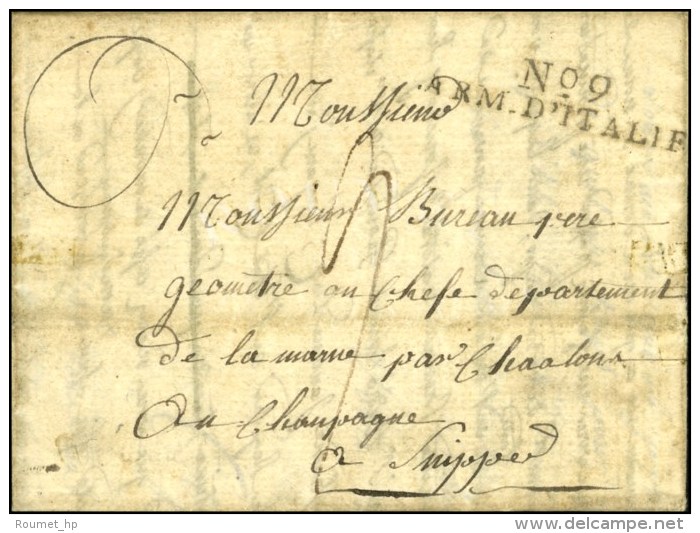 No 9
ARM. D'ITALIE
Monssieur
Monssieur Bureau pere
geometre an Chefe departement
de la marne par Chaalons
An Chanpagne
a Suippe
Roumet_hp
www.delcampe.net